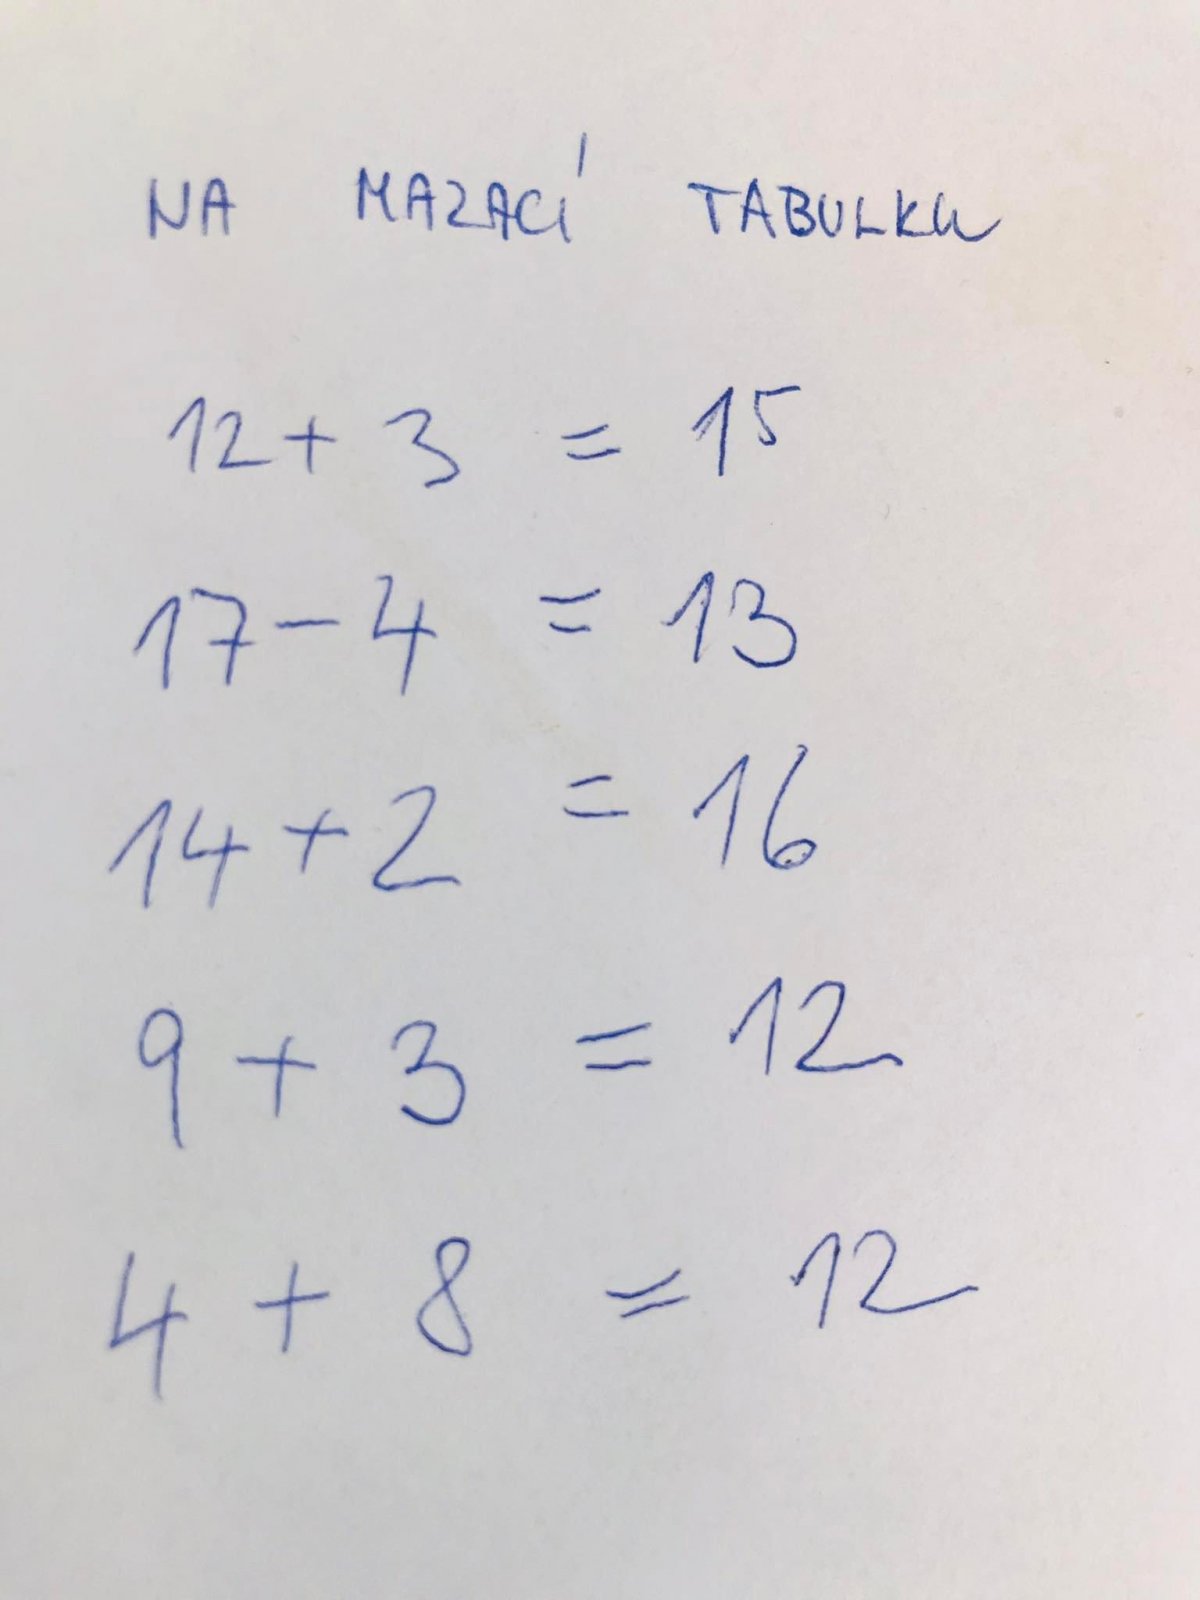 NA MAZACÍ TABULKU
12 + 3 = 15
17 - 4 = 13
14 + 2 = 16
9 + 3 = 12
4 + 8 = 12